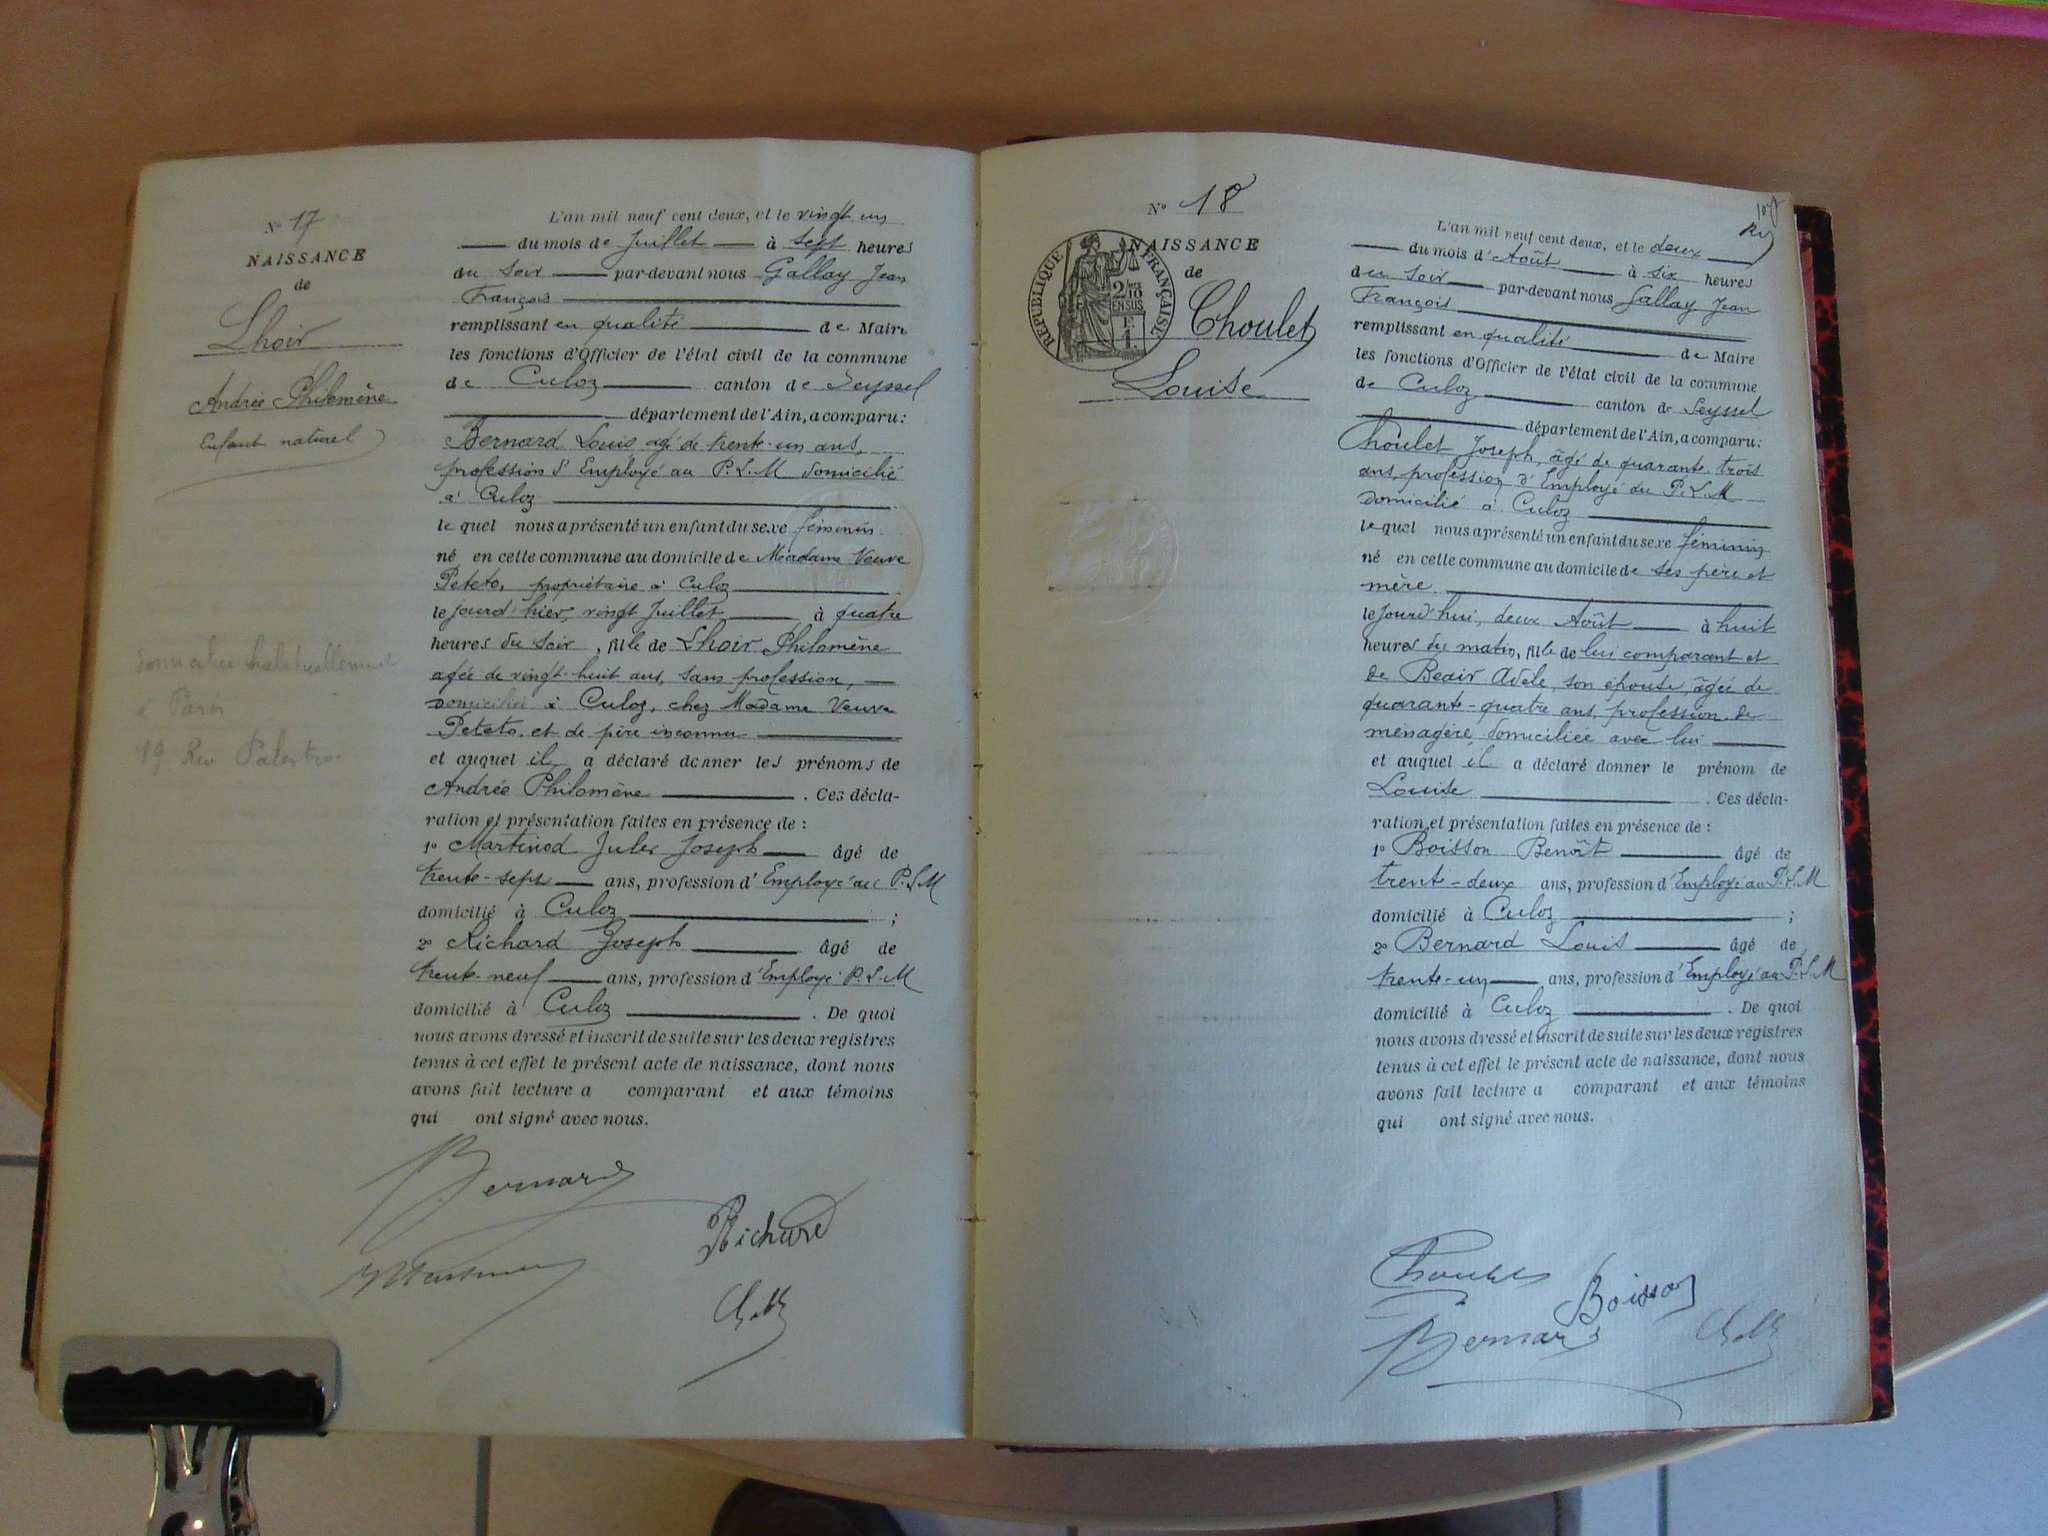 Nº 17
NAISSANCE
de
Lhoir
Andrée Philomène
Enfant naturel
domiciliée habituellement
à Paris
19 Rue Palestro
L'an mil neuf cent deux, et le vingt un
du mois de Juillet à sept heures
du soir par-devant nous Gallay Jean
François
remplissant en qualité de Maire
les fonctions d'Officier de l'état civil de la commune
de Culoz canton de Seyssel
département de l'Ain, a comparu :
Bernard Louis agé de trente-un ans,
profession d'Employé au P.L.M domicilié
à Culoz
le quel nous a présenté un enfant du sexe féminin
né en cette commune au domicile de Madame Veuve
Peteto, propriétaire à Culoz
le jourd'hier, vingt Juillet à quatre
heures du soir, fille de Lhoir Philomène
agée de vingt-huit ans, sans profession,
domicilié à Culoz, chez Madame Veuve
Peteto, et de père inconnu
et auquel il a déclaré donner les prénoms de
Andrée Philomène . Ces décla-
ration et présentation faites en présence de :
1º Martinod Jules Joseph âgé de
trente-sept ans, profession d'Employé au P.L.M
domicilié à Culoz ;
2º Richard Joseph âgé de
trente-neuf ans, profession d'Employé P.L.M
domicilié à Culoz . De quoi
nous avons dressé et inscrit de suite sur les deux registres
tenus à cet effet le présent acte de naissance, dont nous
avons fait lecture a comparant et aux témoins
qui ont signé avec nous.
Bernard
Richard
Nº 18
NAISSANCE
de
Choulet
Louise
RÉPUBLIQUE FRANÇAISE
2/10
EN SUS
L'an mil neuf cent deux, et le deux
du mois d'Août à six heures
du soir par-devant nous Gallay Jean
François
remplissant en qualité de Maire
les fonctions d'Officier de l'état civil de la commune
de Culoz canton de Seyssel
département de l'Ain, a comparu :
Choulet Joseph, âgé de quarante-trois
ans, profession d'Employé du P.L.M
domicilié à Culoz
le quel nous a présenté un enfant du sexe féminin
né en cette commune au domicile de ses père et
mère
le jourd'hui, deux Août à huit
heures du matin, fille de lui comparant et
de Béair Adèle, son épouse, âgée de
quarante-quatre ans, profession de
ménagère domiciliée avec lui
et auquel il a déclaré donner le prénom de
Louise . Ces décla-
ration et présentation faites en présence de :
1º Boisson Benoît âgé de
trente-deux ans, profession d'Employé au P.L.M
domicilié à Culoz ;
2º Bernard Louis âgé de
trente-un ans, profession d'Employé au P.L.M
domicilié à Culoz . De quoi
nous avons dressé et inscrit de suite sur les deux registres
tenus à cet effet le présent acte de naissance, dont nous
avons fait lecture a comparant et aux témoins
qui ont signé avec nous.
Choulet
Boisson
Bernard